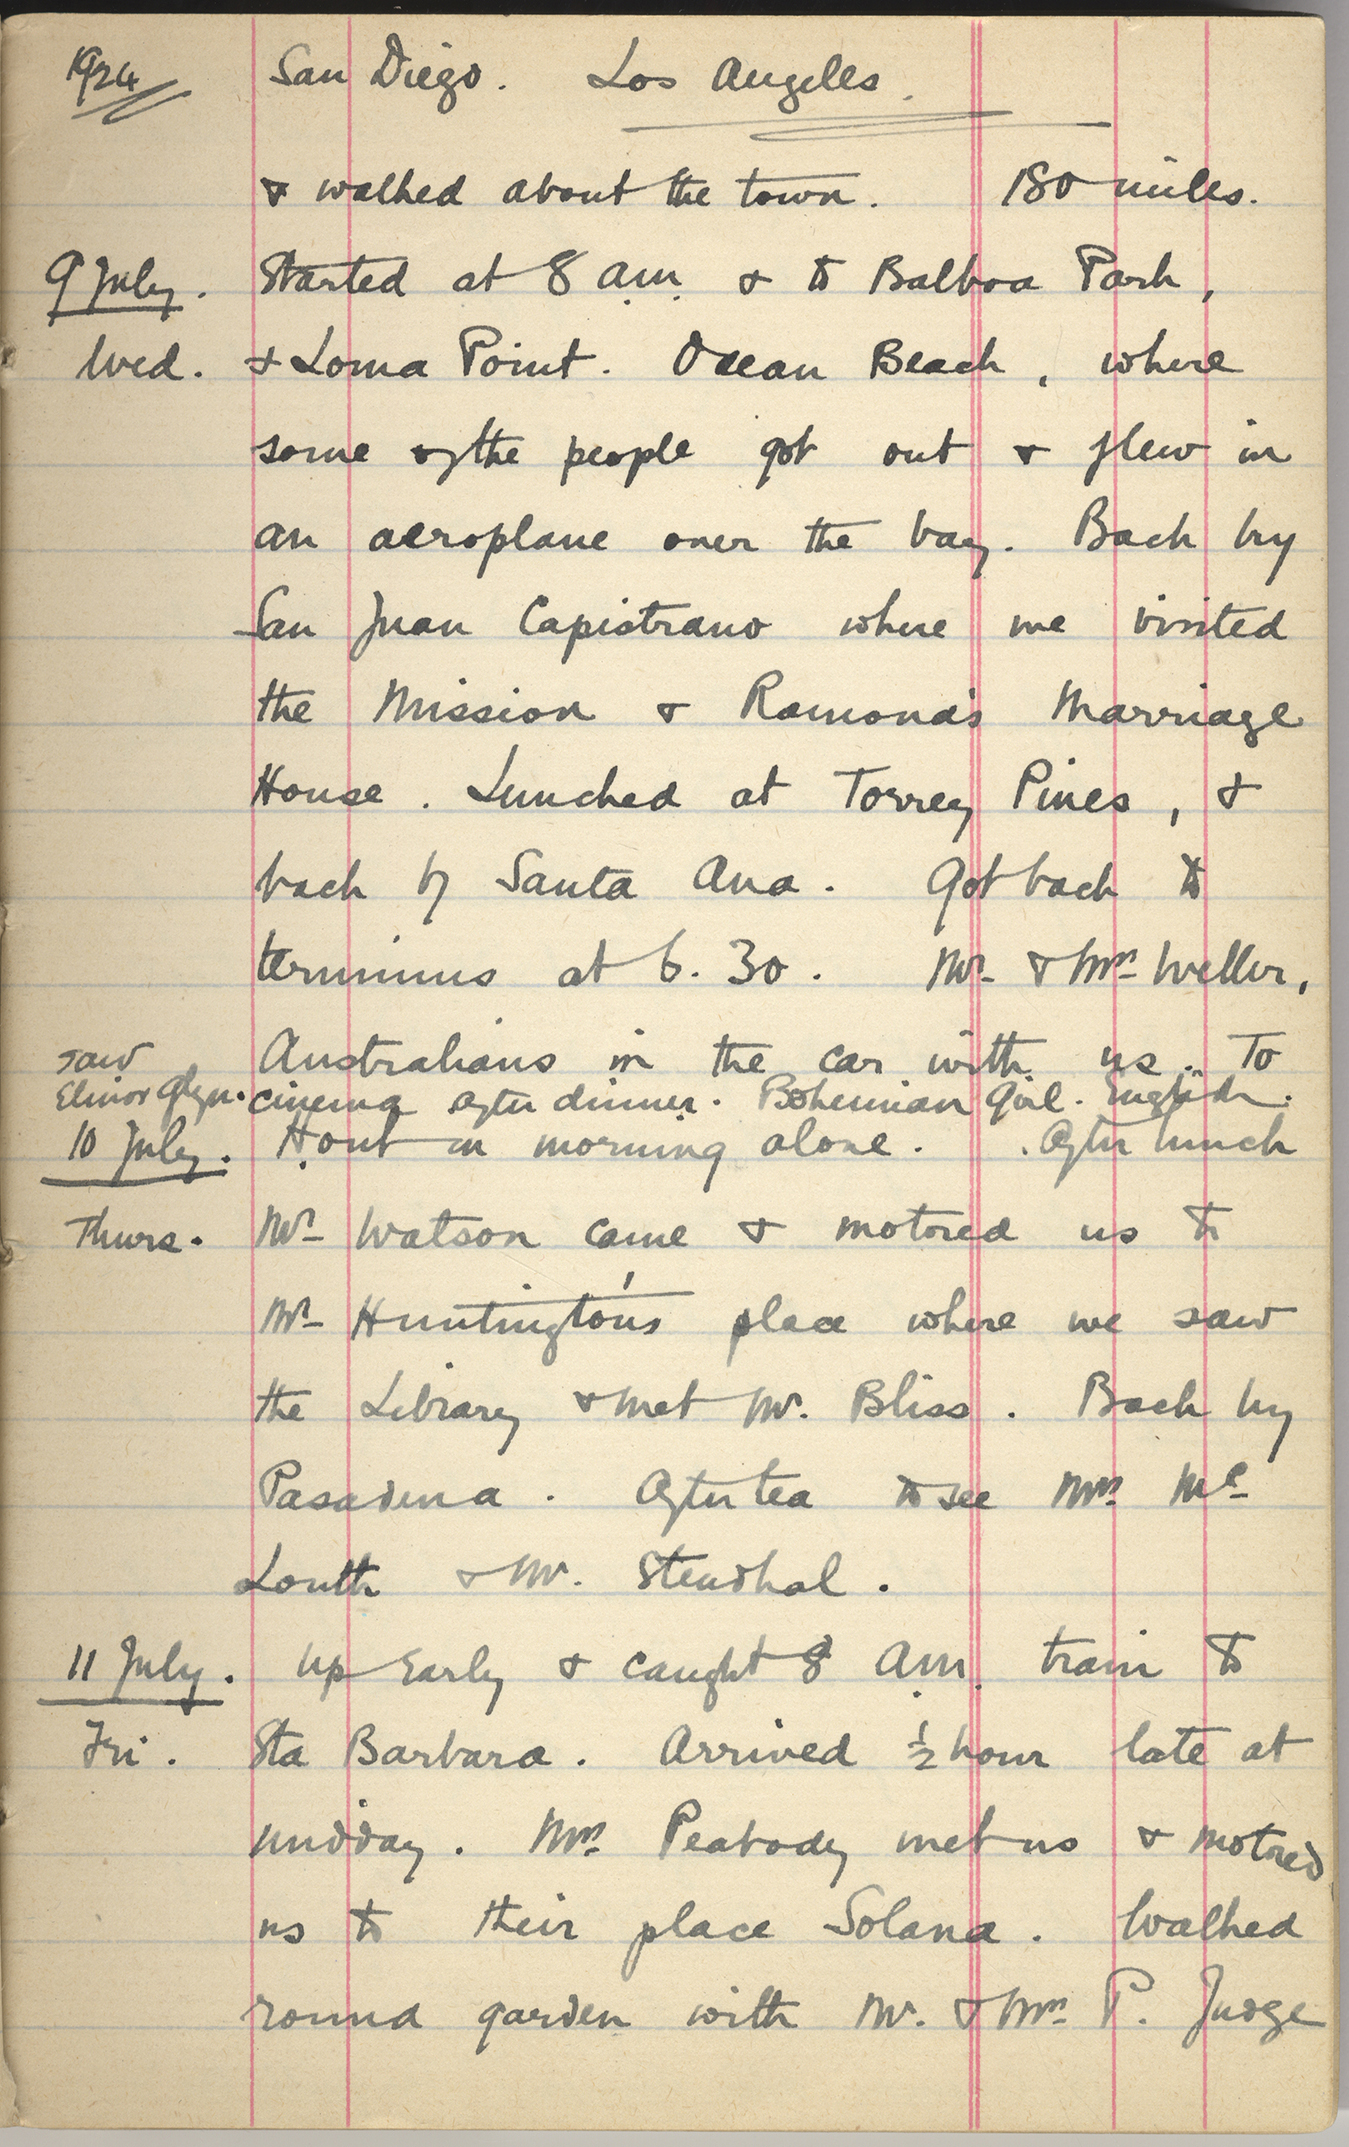 1924 San Diego. Los Angeles.
& walked about the town. 180 miles.
9 July. Started at 8 a.m. & to Balboa Park,
Wed. & Loma Point. Ocean Beach, where
some of the people got out & flew in
an aeroplane over the bay. Back by
San Juan Capistrano where we visited
the Mission & Ramona's Marriage
House. Lunched at Torrey Pines, &
back by Santa Ana. Got back to
terminus at 6.30. Mr & Mrs Weller,
saw Australians in the car with us. To
Elinor Glyn. cinema after dinner. Bohemian Girl. English.
10 July. H. out in morning alone. After lunch
Thurs. Mr Watson came & motored us to
Mr Huntington's place where we saw
the Library & met Mr. Bliss. Back by
Pasadena. After tea to see Mrs Mc
Louth & Mr. Stendhal.
11 July. Up early & caught 8 a.m. train to
Fri. Sta Barbara. Arrived ½ hour late at
midday. Mrs Peabody met us & motored
us to their place Solana. Walked
round garden with Mr. & Mrs P. Judge